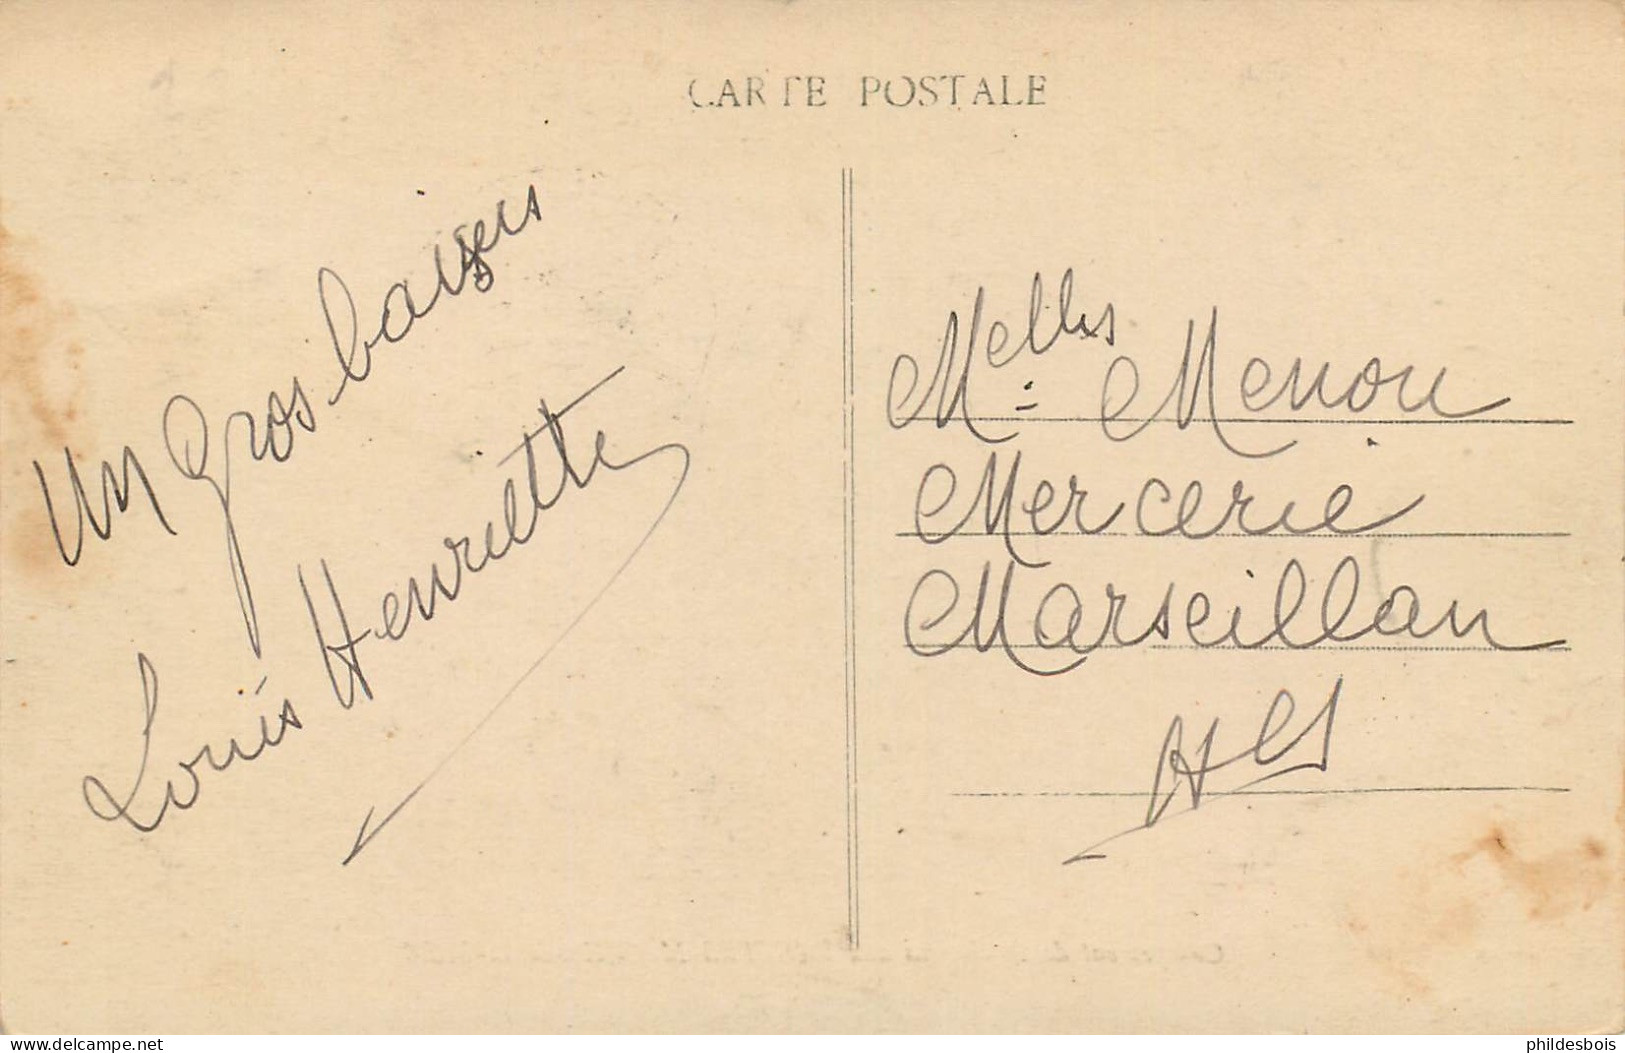 CARTE POSTALE
Un gros baisers
Louis Henriette
Melles Menou
Mercerie
Marseillan
Hlt
delcampe.net
phildesbois